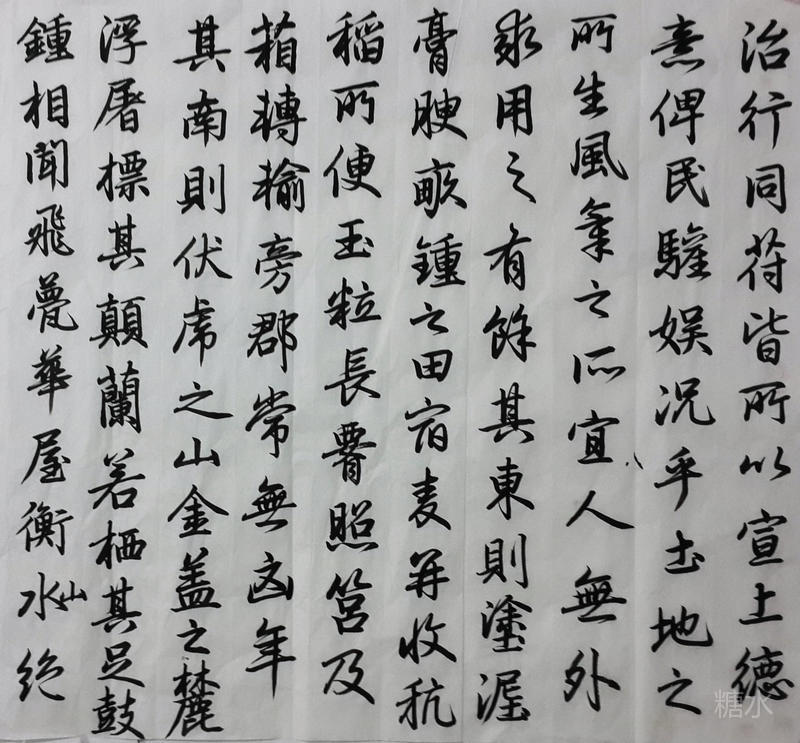 治行同符皆所以宣上德
意俾民驩娛况乎土地之
所生風氣之所宜人無外
求用之有餘其東則塗渥
膏腴畝鍾之田宿麦再收秔
稻所便玉粒長照筥及
箱轉輸旁郡常無凶年
其南則伏虎之山金盖之麓
浮屠標其顛蘭若栖其足鼓
鍾相聞飛甍華屋衡水山絶
糖水